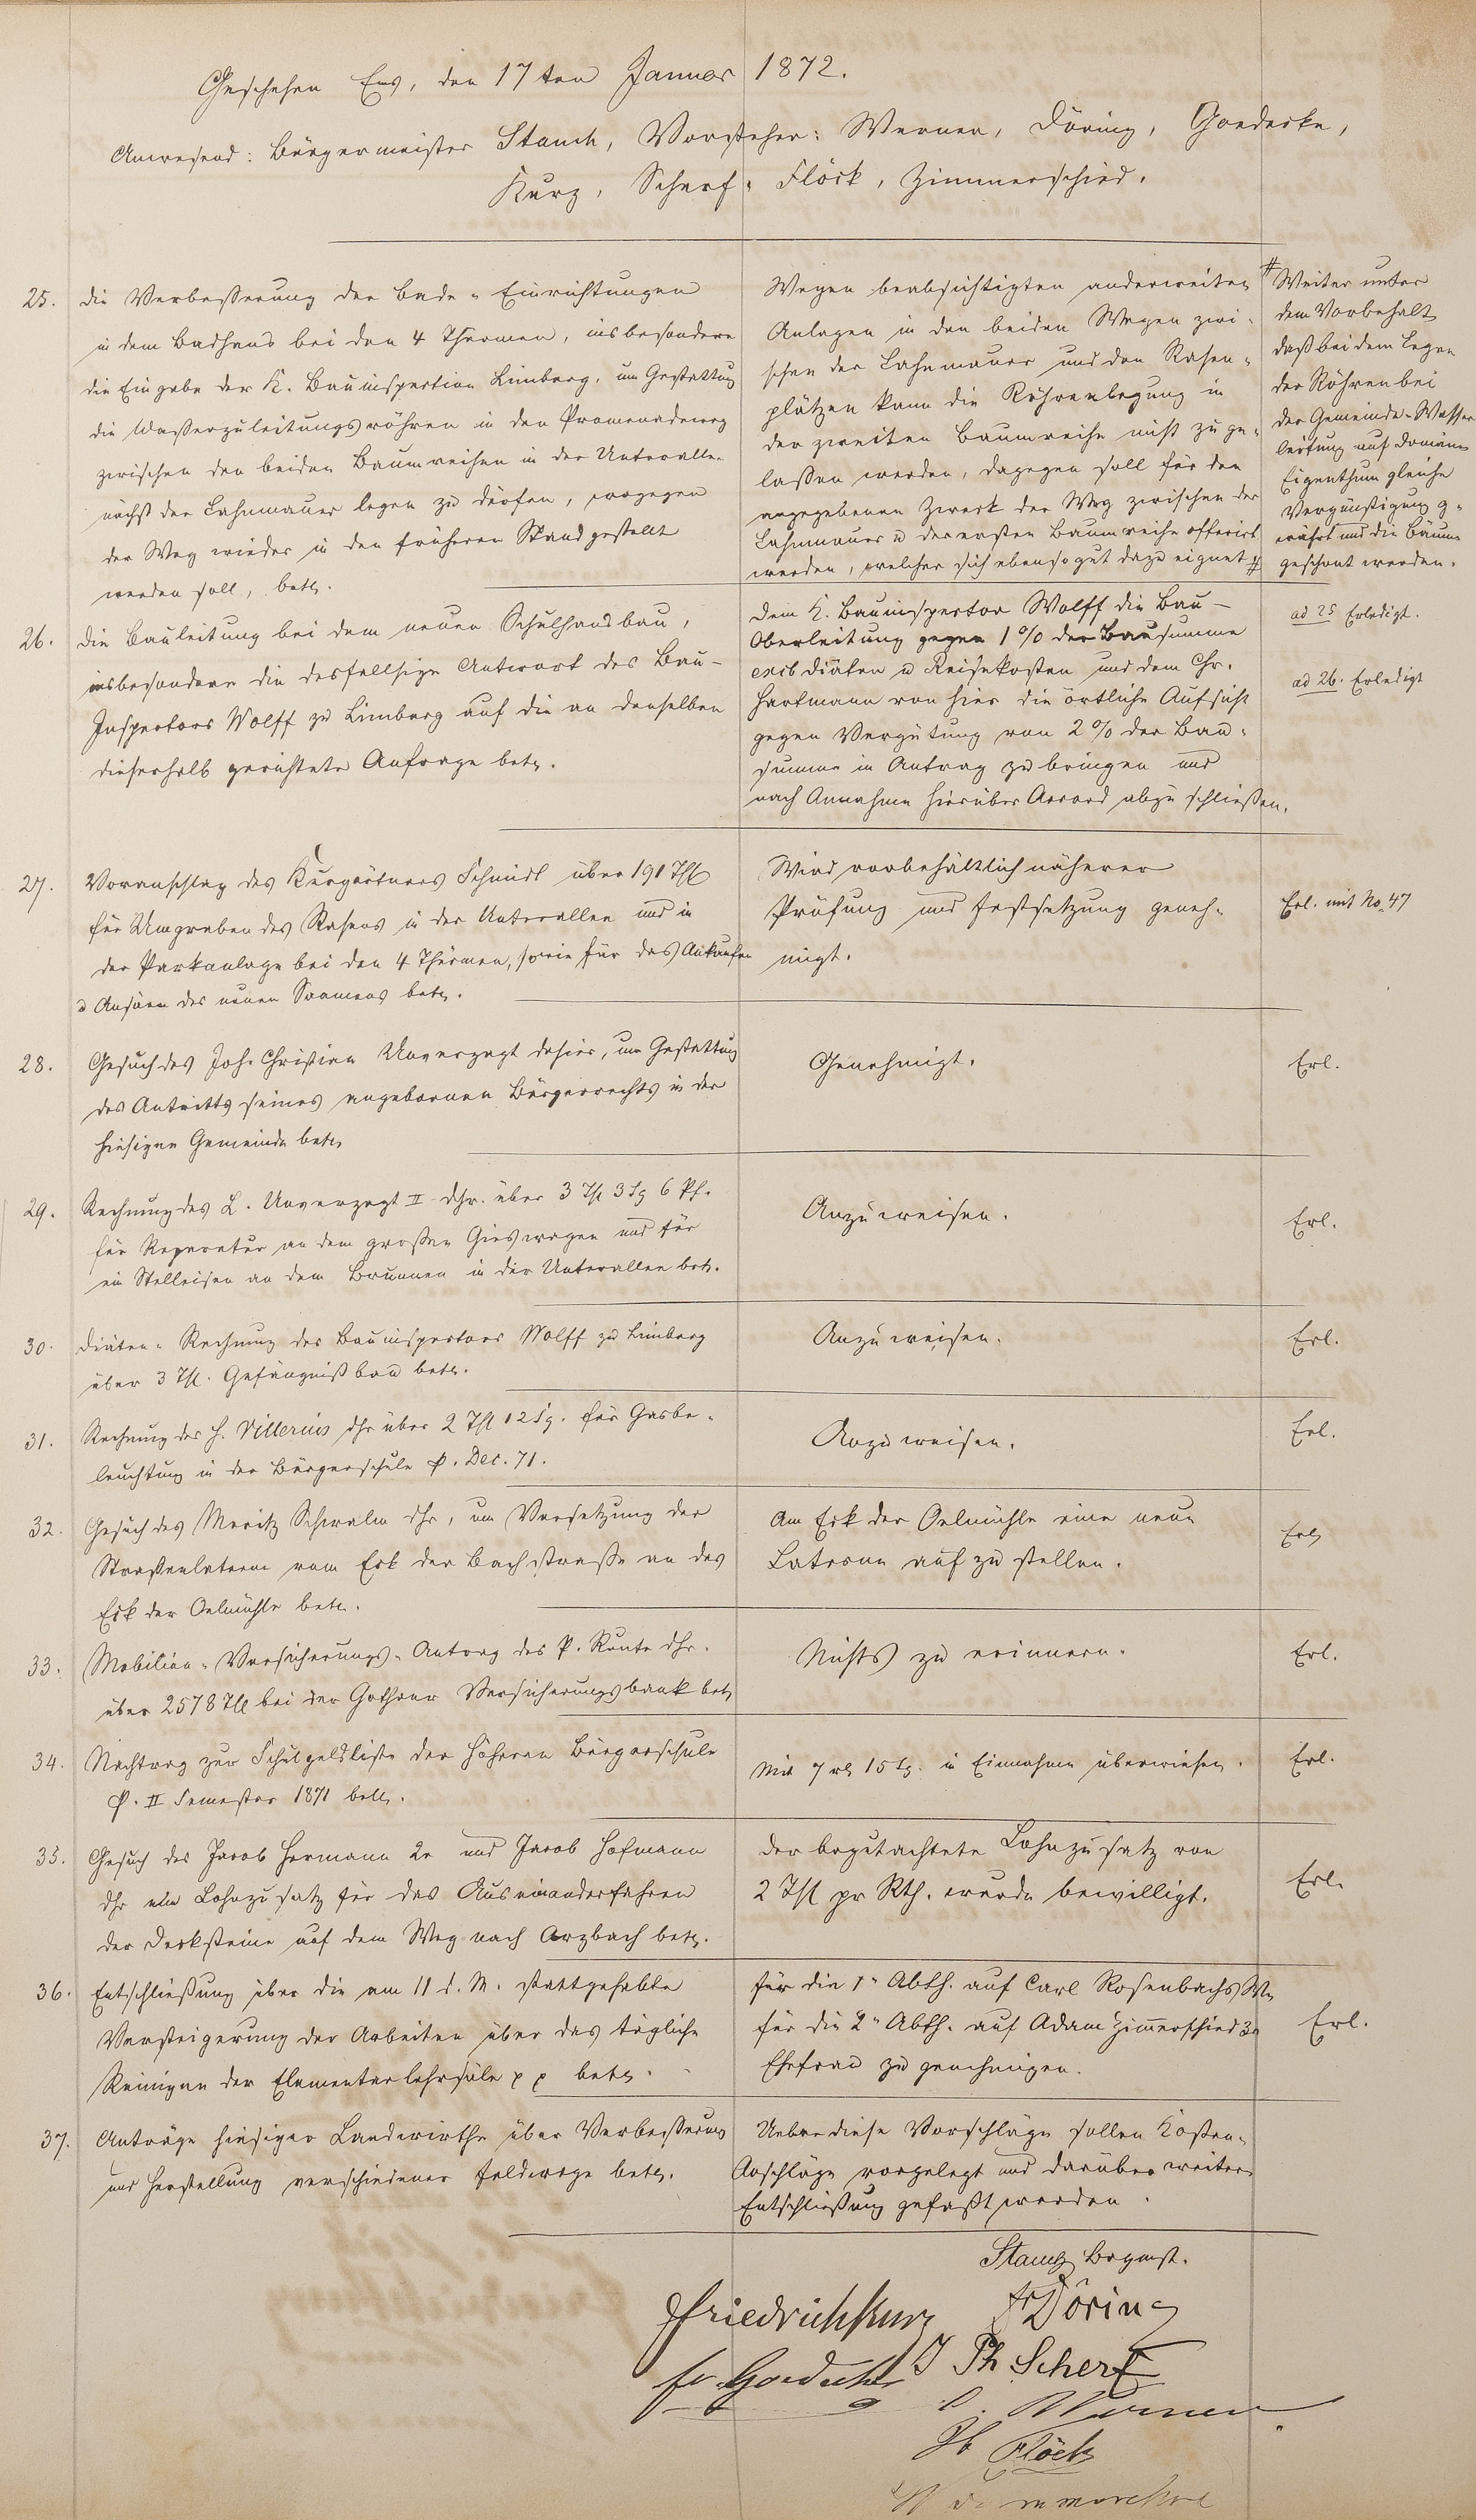 Geschehen Ems, den 17ten Januar 1872.
Anwesend: Bürgermeister Stamm, Vorsteher: Werner, Döring, Goedecke,
Kurz, Scherf, Flöck, Zimmerschied.
25. Die Verbeßerung der Bade-Einrichtungen
in dem Badhaus bei den 4 Thürmen, insbesondere
die Eingabe der K. Bauinspection Limburg, um Gestattung
die Waßerzuleitungsröhren in den Promenadeweg
zwischen den beiden Baumreihen in der Unterallee
nächst der Lahnmauer legen zu dürfen, wogegen
der Weg wieder in den früheren Stand gestellt
werden soll, betr.
Wegen beabsichtigten anderweiten
Anlagen in den beiden Wegen zwi-
schen der Lahnmauer und den Rasen-
plätzen kann die Röhrenlegung in
der zweiten Baumreihe nicht zuge-
laßen werden, dagegen soll für den
angegebenen Zweck der Weg zwischen der
Lahnmauer u der ersten Baumreihe offerirt
werden, welcher sich ebenso gut dazu eignet #
# Weiter unter
dem Vorbehalt
daß bei dem Legen
der Röhren bei
der Gemeinde-Wasser
leitung auf Domänen
Eigenthum gleiche
Vergünstigung g-
währt und die Bäume
geschont werden.
26. Die Bauleitung bei dem neuen Schulhausbau,
insbesondere die desfallsige Antwort des Bau-
Inspectors Wolff zu Limburg auf die an denselben
dieserhalb gerichtete Anfrage betr.
Dem K. Bauinspector Wolff die Bau-
Oberleitung gegen 1% der Bausumme
excl. Diäten u Reisekosten und dem Chr.
Hartmann von hier die örtliche Aufsicht
gegen Vergütung von 2% der Bau-
summe in Antrag zu bringen und
nach Annahme hierüber Accord abzuschließen.
ad 25 Erledigt.
ad 26. Erledigt
27. Voranschlag des Kurgärtners Schmidt über 191 Thl
für Umgraben des Rasens in der Unterallee und in
der Parkanlage bei den 4 Thürmen, sowie für das Ankaufen
u Ansäen des neuen Saamens betr.
Wird vorbehältlich näherer
Prüfung und Festsetzung geneh-
migt.
Erl. mit No. 47
28. Gesuch des Joh. Christian Unverzagt dahier, um Gestattung
des Antritts seines angebornen Bürgerrechts in der
hiesigen Gemeinde betr
Genehmigt.
Erl.
29. Rechnung des L. Unverzagt II dhr. über 3 Thl 3 Sg 6 Pf.
für Reparatur an dem großen Gieswagen und für
ein Stelleisen an dem Brunnen in der Unterallee betr.
Anzuweisen.
Erl.
30. Diäten-Rechnung des Bauinspectors Wolff zu Limburg
über 3 Thl. Gefängnißbau betr.
Anzuweisen.
Erl.
31. Rechnung des H. Villerius dhr über 2 Thl 12 Sg. für Gasbe-
leuchtung in der Bürgerschule p. Dec. 71.
Anzuweisen.
Erl.
32. Gesuch des Moritz Schwalm dhr, um Versetzung der
Straßenlaterne vom Eck der Bachstraße an das
Eck der Oelmühle betr.
Am Eck der Oelmühle eine neue
Laterne aufzustellen.
Erl
33. Mobilien-Versicherungs-Antrag des P. Runte dhr.
über 2578 Thl bei der Gothaer Versicherungsbank betr
Nichts zu erinnern.
Erl.
34. Nachtrag zur Schulgeldliste der höheren Bürgerschule
p. II Semester 1871 betr.
Mit 7 rl 15 Sg. in Einnahme überwiesen.
Erl.
35. Gesuch des Jacob Hermann 2r und Jacob Hofmann
dhr um Lohnzusatz für das Auseinanderfahren
der Decksteine auf dem Weg nach Arzbach betr.
Der begutachtete Lohnzusatz von
2 Thl pr Rth. wurde bewilligt.
Erl.
36. Entschließung über die am 11 d. M. stattgehabte
Versteigerung der Arbeiten über das tägliche
Reinigen der Elementarlehrsäle p p betr.
für die 1te Abth. auf Carl Rosenbachs We
für die 2te Abth. auf Adam Zimmerschied 3r
Ehefrau zu genehmigen.
Erl.
37. Anträge hiesiger Landwirthe über Verbeßerung
und Herstellung verschiedener Feldwege betr.
Ueber diese Vorschläge sollen Kosten-
Anschläge vorgelegt und darüber weitere
Entschließung gefaßt werden.
Brgmst.
Friedrich Kurz Fr Döring
Fr Goedecke J Ph Scherf
C. Werner
Jb Flöck